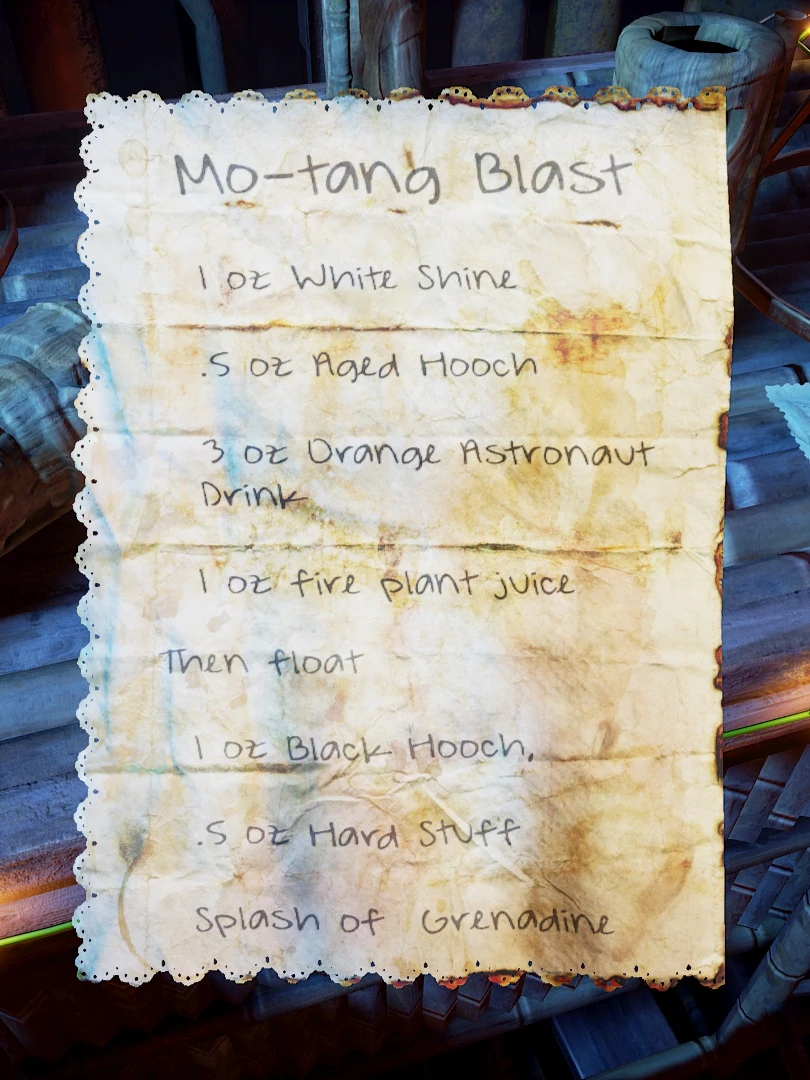 Mo-tang Blast
1 oz White Shine
.5 oz Aged Hooch
3 oz Orange Astronaut
Drink
1 oz fire plant juice
Then float
1 oz Black Hooch,
.5 oz Hard Stuff
Splash of Grenadine